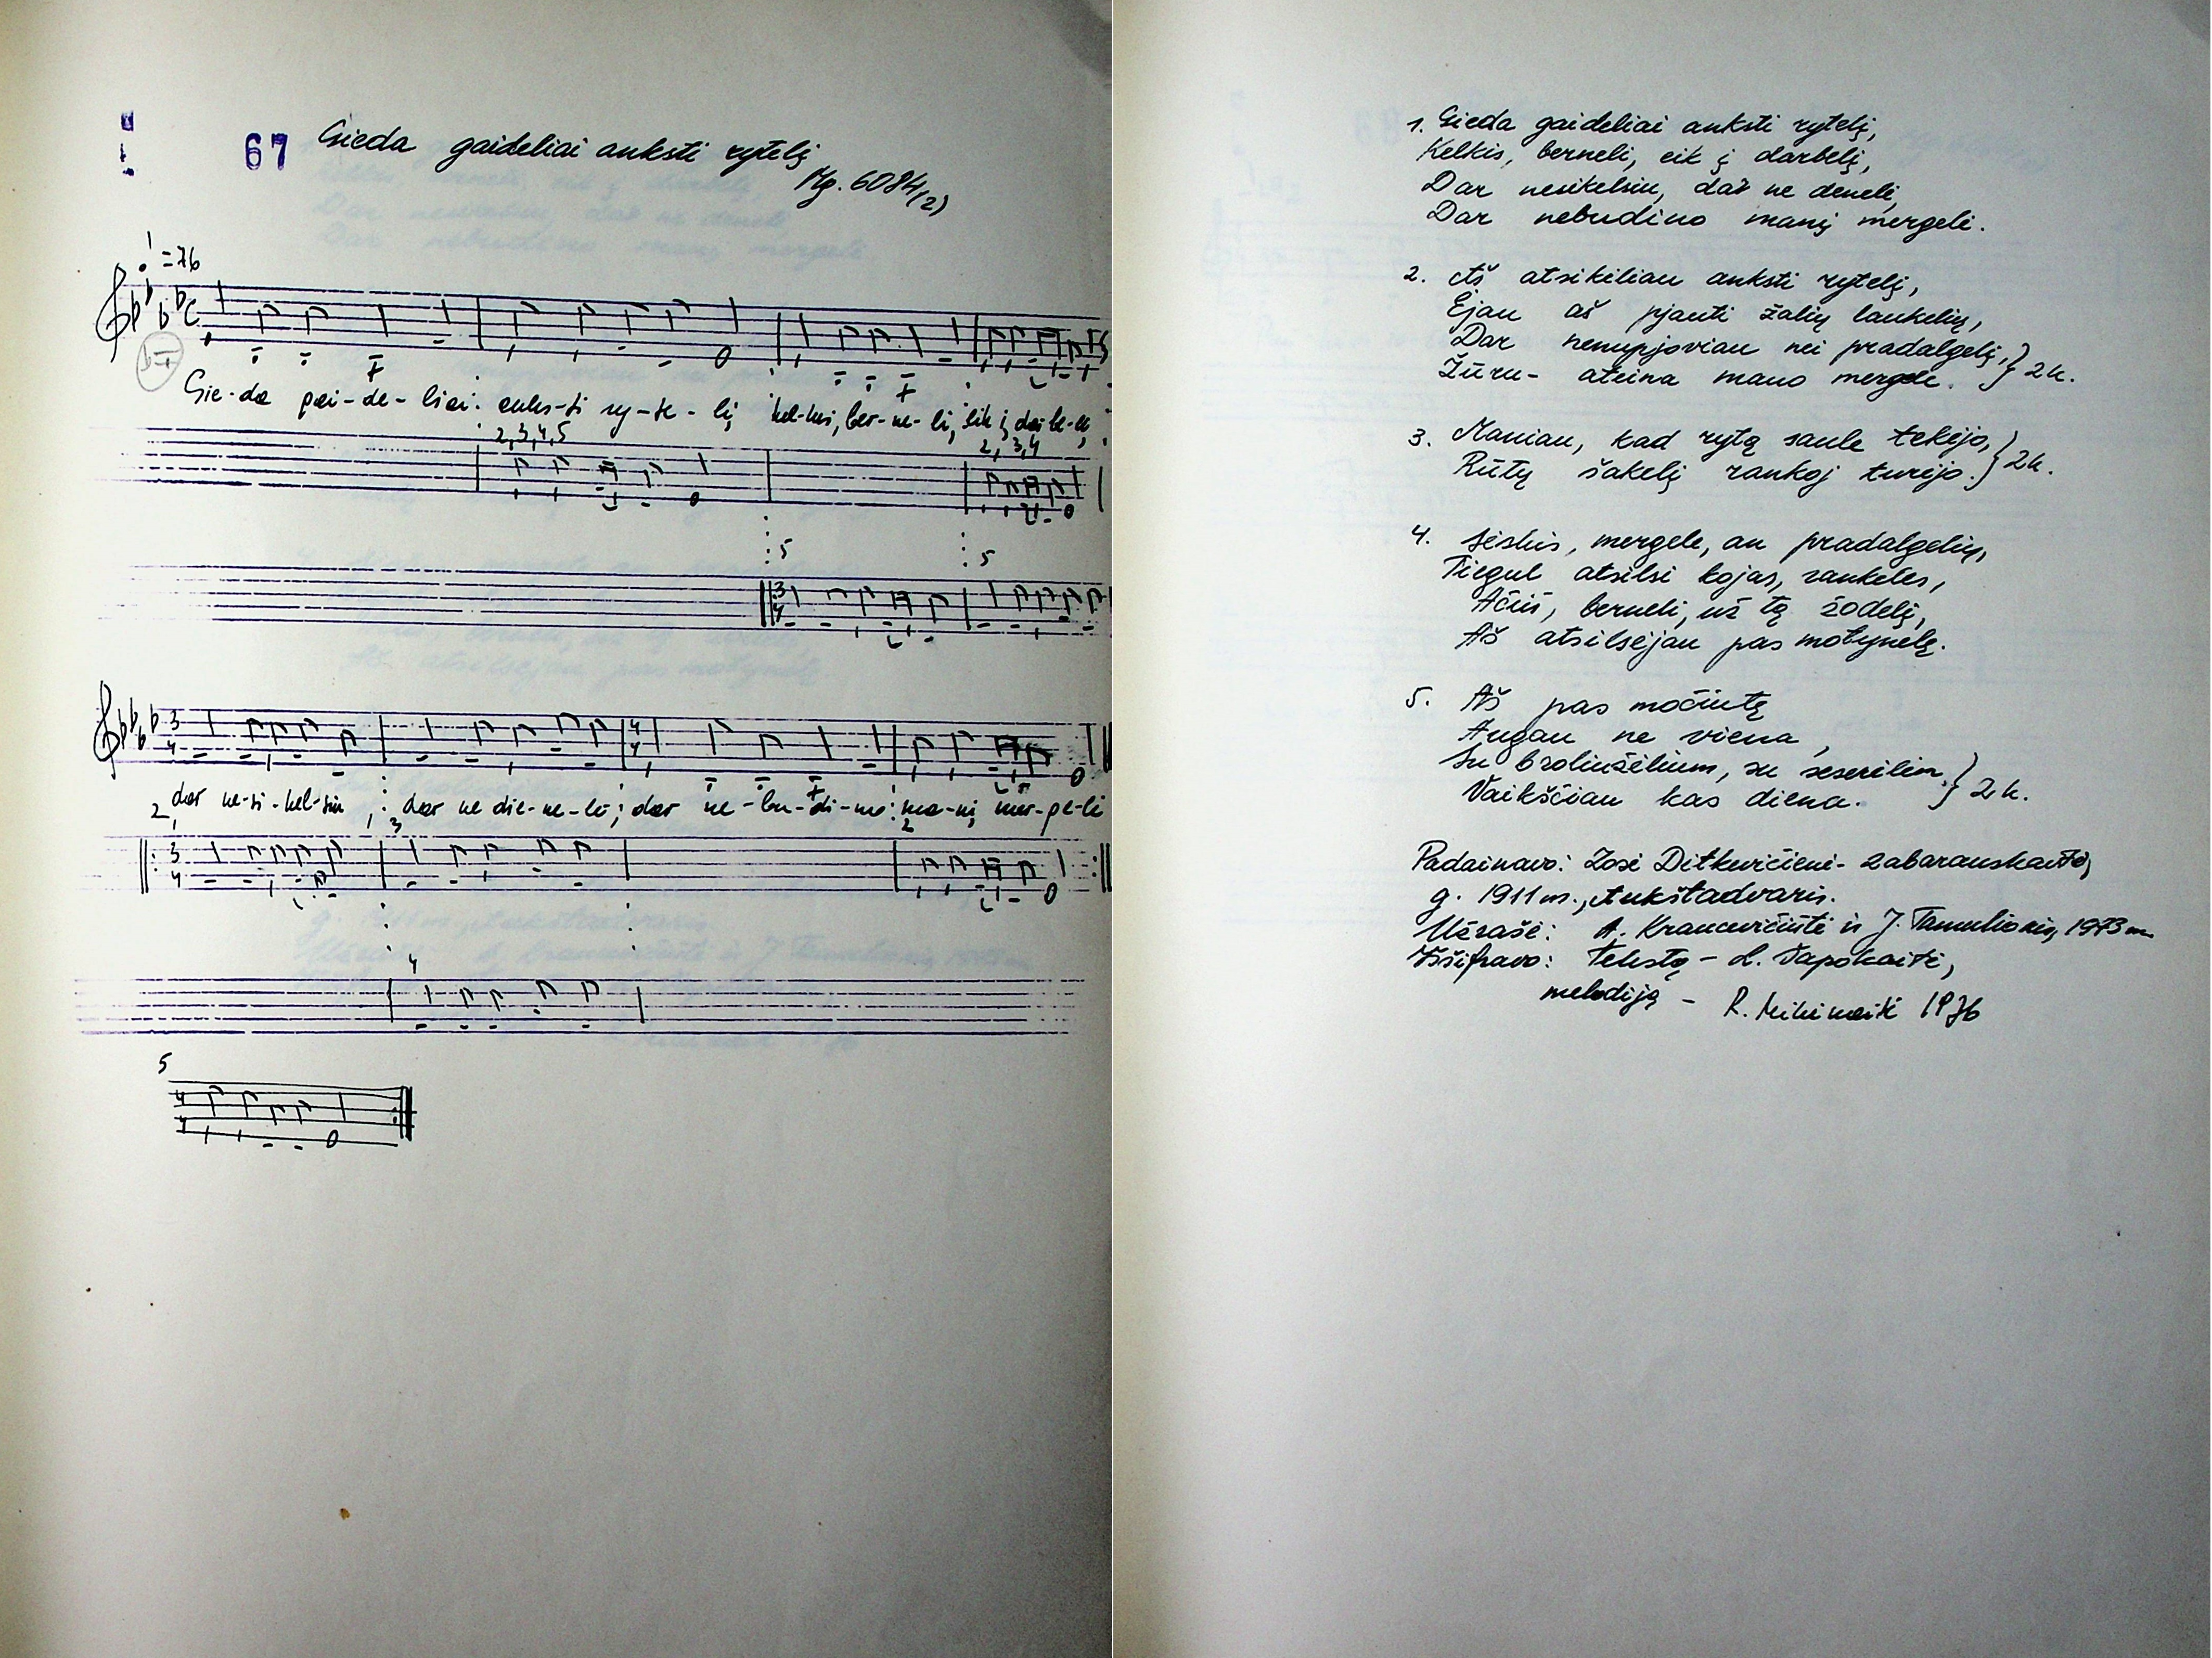 67 Gieda gaideliai anksti rytelį
Mg. 6084/(2)
=76
Gie-da gai-de-liai anks-ti ry-te-lį kel-kis, ber-ne-li, eik į dar-be-lį,
2,3,4,5
2,3,4
5
5
dar ne-si-kel-siu, dar ne die-ne-lė; dar ne-bu-di-no ma-nį mer-ge-lė
2
3
2
4
5
1. Gieda gaideliai anksti rytelį,
Kelkis, berneli, eik į darbelį,
Dar nesikelsiu, dar ne denelė,
Dar nebudino manį mergelė.
2. Aš atsikėliau anksti rytelį,
Ėjau aš pjauti žalių laukelių,
Dar nenupjoviau nei pradalgelį,
Žūru- ateina mano mergelė. } 2k.
3. Maniau, kad rytą saulė tekėjo,
Rūtų šakelį rankoj turėjo. } 2k.
4. Sėskis, mergele, an pradalgelių,
Tiegul atsilsi kojas, rankeles,
Ačiū, berneli, už tą žodelį,
Aš atsilsėjau pas motynėlę.
5. Aš pas močiutę
Augau ne viena,
Su broliužėlium, su seserėlim,
Vaikščiau kas diena. } 2k.
Padainavo: Zosė Ditkevičienė- Zabarauskaitė,
g. 1911 m., Aukštadvaris.
Užrašė: A. ir J. 1973 m.
Iššifravo: Tekstą - L. Sapokaitė,
melodiją - R. 1976